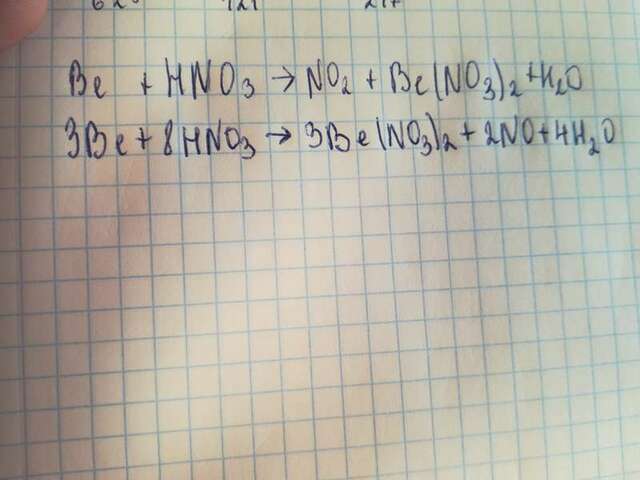 Be + HNO₃ → NO₂ + Be(NO₃)₂ + H₂O
3Be + 8HNO₃ → 3Be(NO₃)₂ + 2NO + 4H₂O